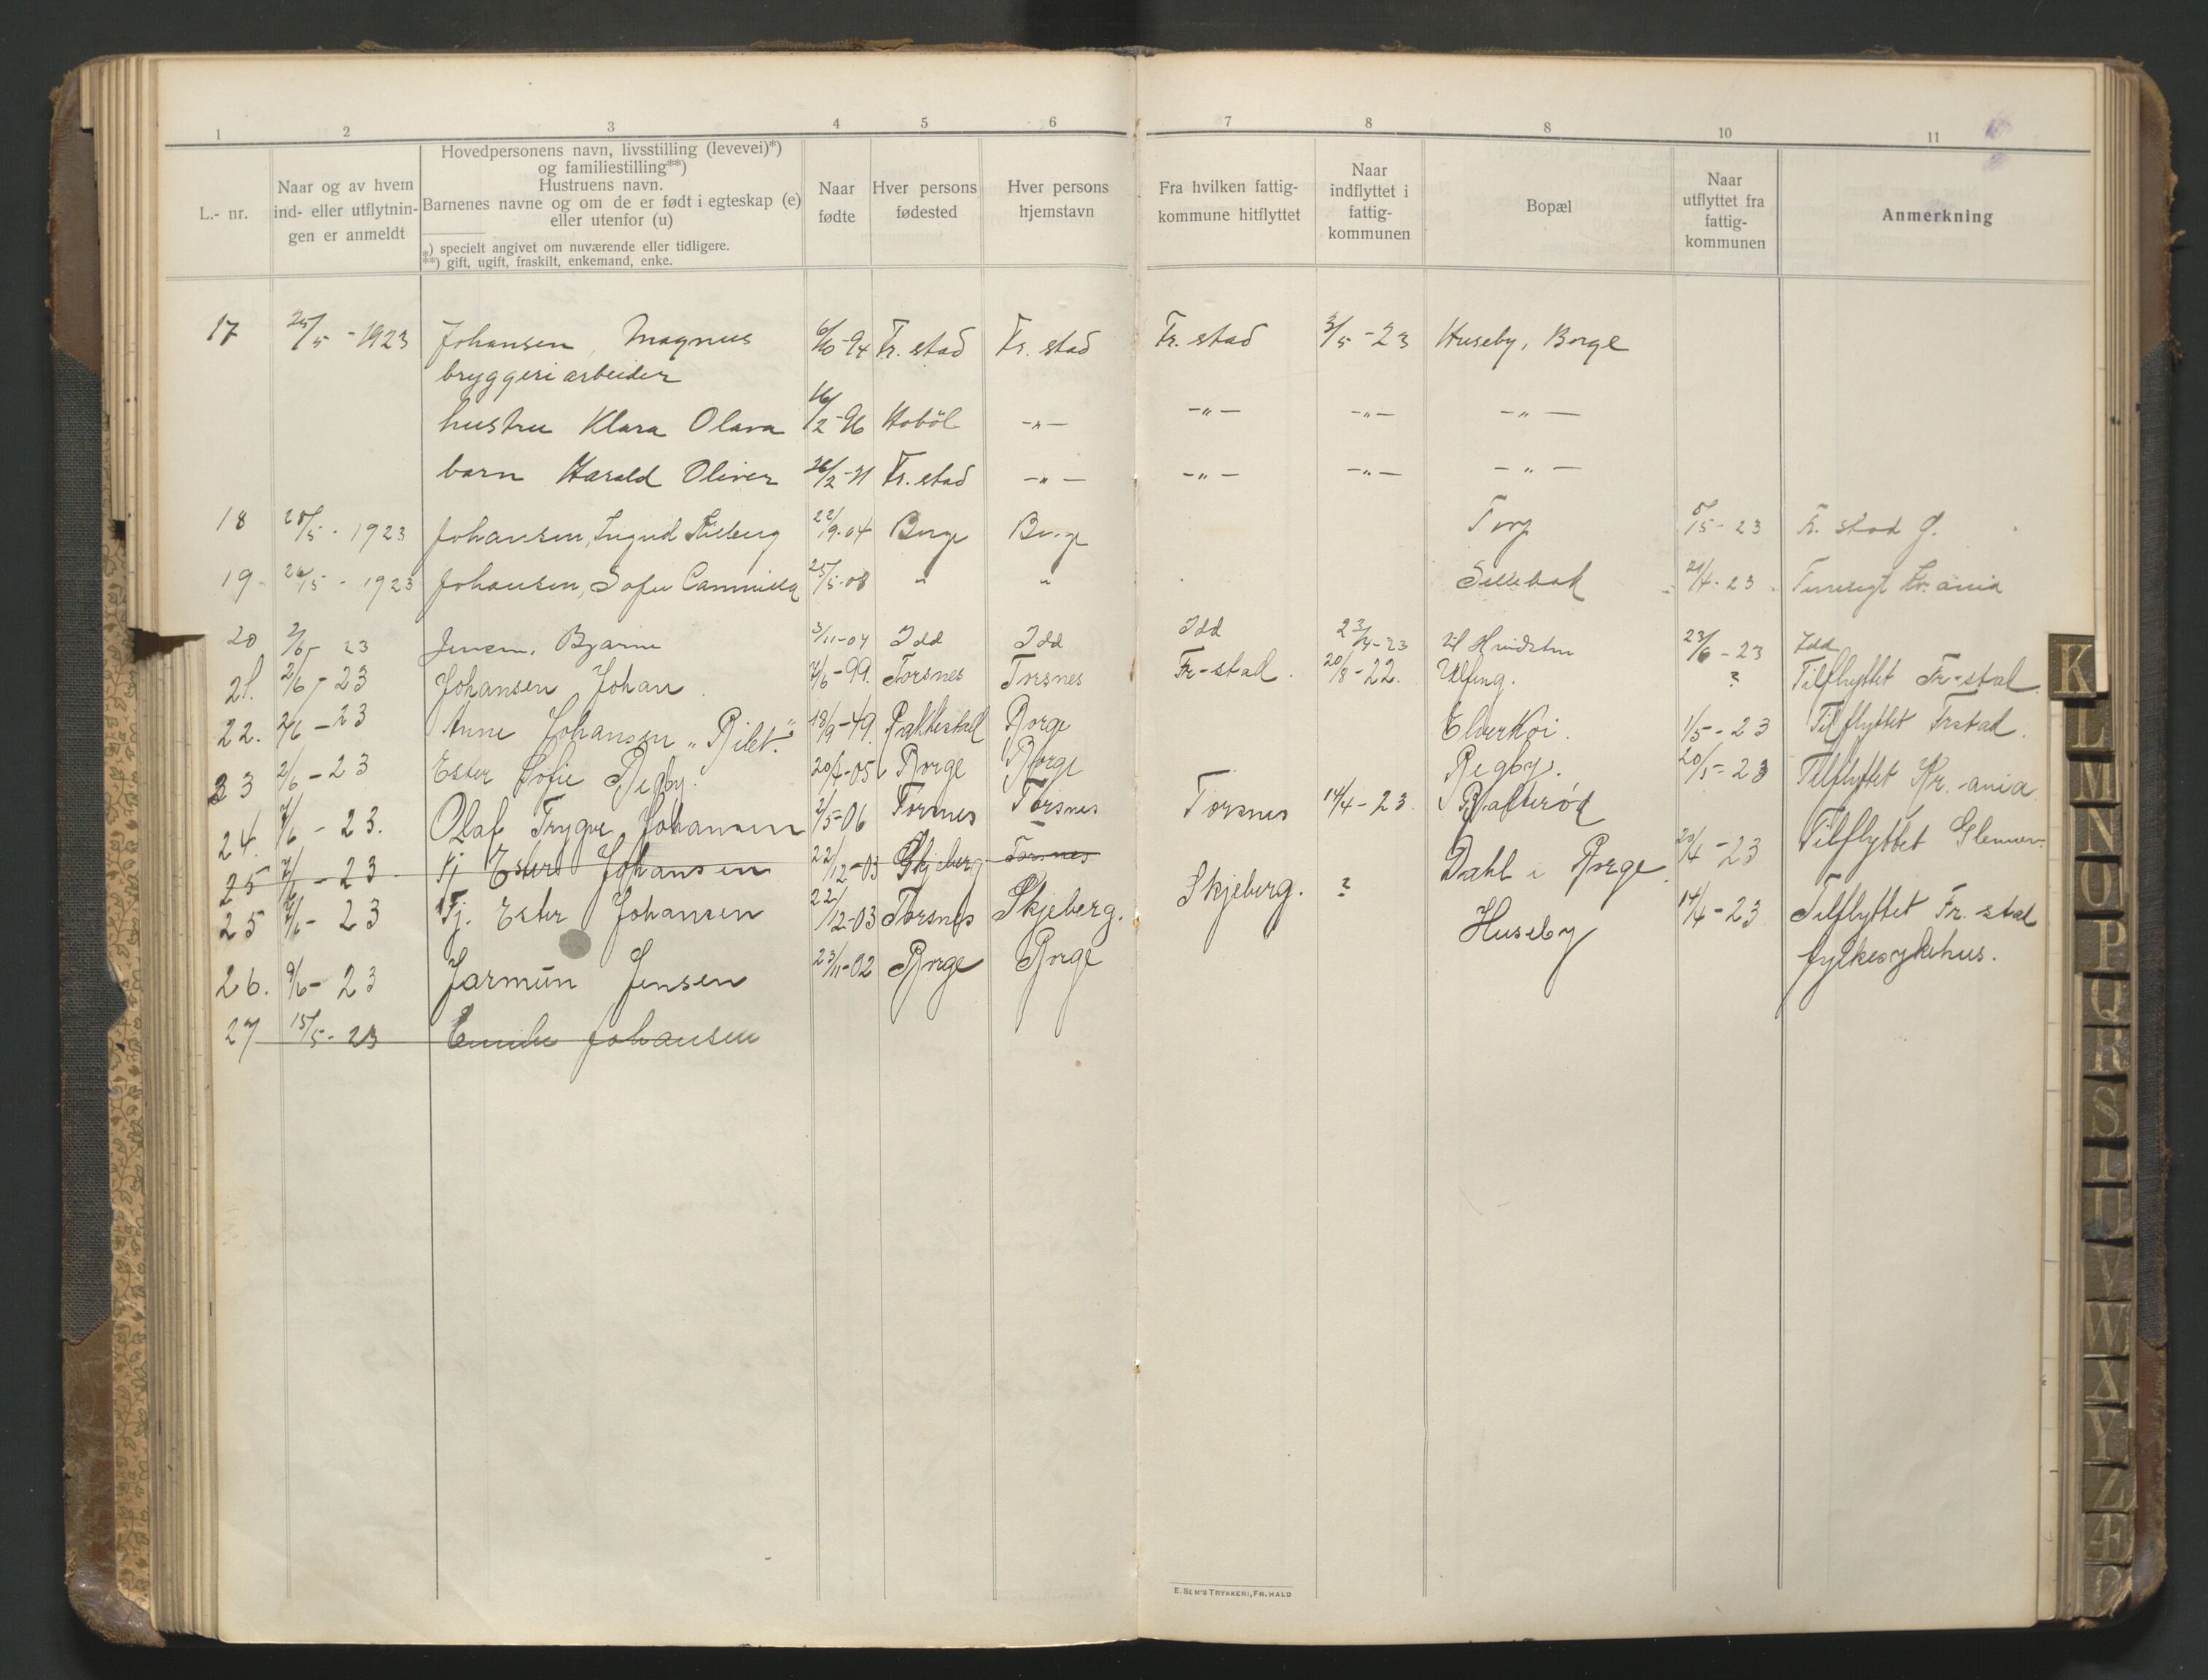 1 2 3 4 5 6 7 8 8 10 11
L.- nr.
Naar og av hvem
ind- eller utflytnin-
gen er anmeldt
Hovedpersonens navn, livsstilling (levevei)*)
og familiestilling**)
Hustruens navn.
Barnenes navne og om de er født i egteskap (e)
eller utenfor (u)
*) specielt angivet om nuværende eller tidligere.
**) gift, ugift, fraskilt, enkemand, enke.
Naar
fødte
Hver persons
fødested
Hver persons
hjemstavn
Fra hvilken fattig-
kommune hitflyttet
Naar
indflyttet i
fattig-
kommunen
Bopæl
Naar
utflyttet fra
fattig-
kommunen
Anmerkning
17 25/5 - 1923 Johansen, Magnus 6/10-94 Fr. stad Fr. stad Fr. stad 3/5-23 Huseby, Borge
bryggeriarbeider
hustru Klara Olava 16/2-96 Hobøl -"- -"- -"- -"-
barn Harald Oliver 26/2-21 Fr. stad -"- -"- -"- -"-
18 28/5 - 1923 Johansen, Ingrid 22/9-04 Borge Borge Torp /5-23 Fr. stad
19 26/5 - 1923 Johansen, Sofie Cammilla 25/5-08 " " Sellebak 21/4-23 Kr. ania
20 2/6- 23 Jensen, Bjarne 3/11-04 Idd Idd Idd 23/4-23 til 23/6-23 Idd
21. 2/6- 23 Johansen Johan. 7/6-99. Torsnes Torsnes Fr-stad. 20/8-22. Ulfeng. ? Tilflyttet Fr-stad.
22. 2/6-23 Anne Johansen "Bilet." 18/9-49. Rakkestad Borge Elverkoi. 1/5-23 Tilflyttet Frstad.
23 2/6-23 Ester Sofie Begby. 20/7-05 Borge Borge Begby. 20/5-23 Tilflyttet Kr.-ania
24. 7/6-23. Olaf Trygve Johansen 2/5-06 Torsnes Torsnes Torsnes 14/4-23. Rafterød
25 7/6-23 Fj Ester Johansen 22/12-03 Skjeberg Torsnes Dahl i Borge. 20/4-23 Tilflyttet Glemmen.
25 7/6-23 Fj. Ester Johansen 22/12-03 Torsnes Skjeberg. Skjeberg. ? Huseby 14/4-23 Tilflyttet Fr. stad
26. 9/6-23 Jarmün Jensen 23/11-02 Borge Borge fylkesykehus.
27 15/5-23 Emilie Johansen
E. SEM'S TRYKKERI, FR.HALD
K
L
M
N
O
P
Q
R
S
T
U
V
W
X
Y
Z
Æ
Ø